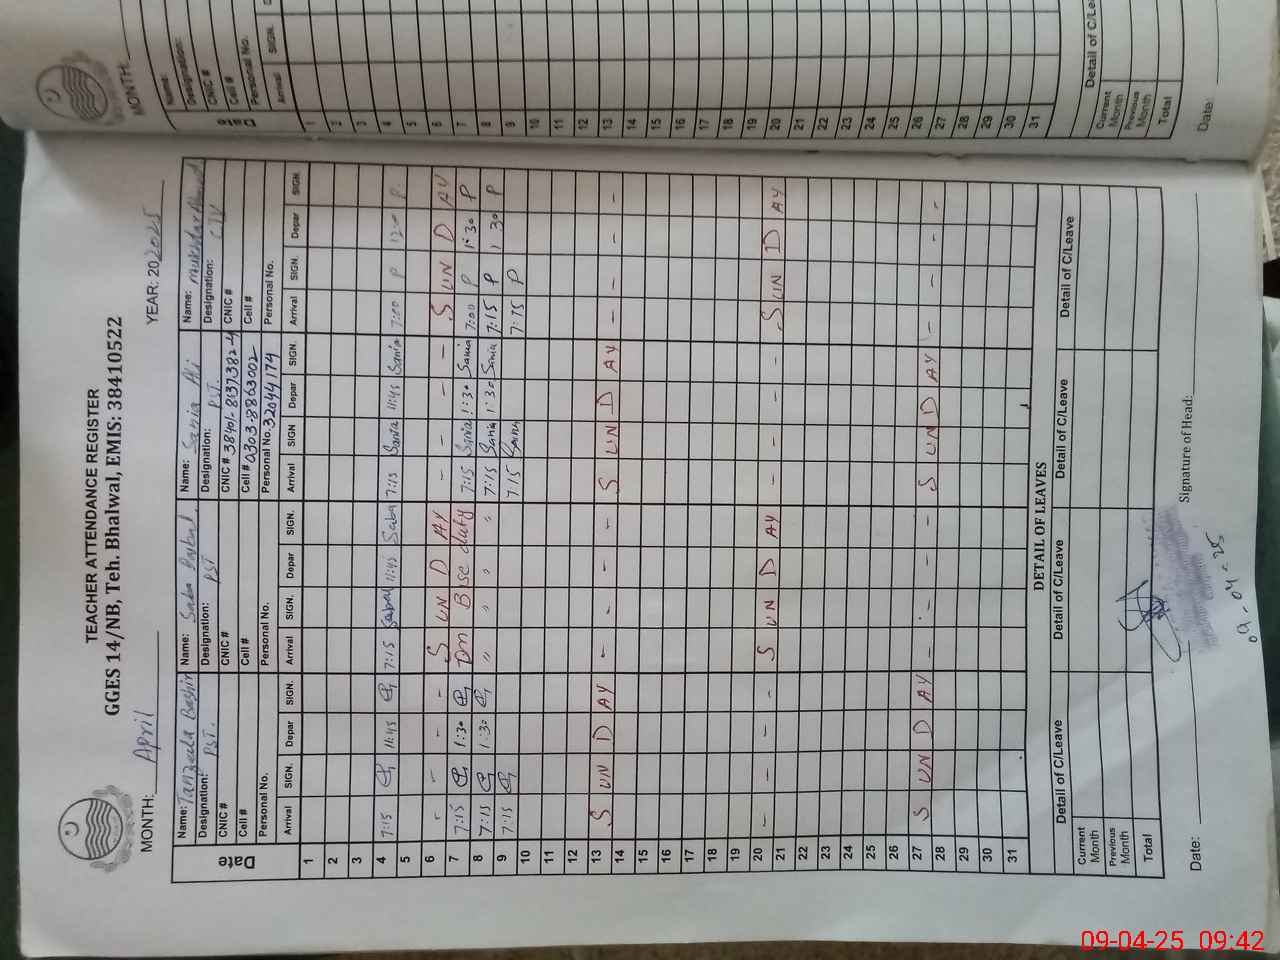 TEACHER ATTENDANCE REGISTER
GGES 14/NB, Teh. Bhalwal, EMIS: 38410522
MONTH: April YEAR: 2025
Date
Name: Tanzeela Bashir Name: Saba Name: Sania Ali Name: Mukhtar Ahmad
Designation: PST. Designation: PST Designation: PST. Designation:
CNIC # CNIC # CNIC # 38401-8137382-4 CNIC #
Cell # Cell # Cell # 0303-8863002 Cell #
Personal No. Personal No. Personal No. 32044174 Personal No.
Arrival SIGN. Depar SIGN. Arrival SIGN. Depar SIGN. Arrival SIGN Depar SIGN. Arrival SIGN. Depar SIGN.
1
2
3
4 7:15 11:45 7:15 Saba 11:45 Saba 7:15 Sania 11:45 Sania 7:00 P P
5
6 - - - S UN D AY - - - S UN D AY
7 7:15 1:30 On Bise duty 7:15 Sania 1:30 Sania 7:00 P 1:30 P
8 7:15 1:30 " " " " 7:15 Sania 1:30 Sania 7:15 P 1 30 P
9 7:15 7:15 Sania 7:15 P
10
11
12
13 S UN D AY - - - - S UN D AY - - - -
14
15
16
17
18
19
20 - - - - S UN D AY - - - - S UN D AY
21
22
23
24
25
26
27 S UN D AY - - - - S UN D AY - - - -
28
29
30
31
DETAIL OF LEAVES
Detail of C/Leave Detail of C/Leave Detail of C/Leave Detail of C/Leave
Current Month
Previous Month
Total
Date: Signature of Head:
09-04-25
MONTH:
Name:
Designation:
CNIC #
Cell #
Personal No.
Date
Arrival SIGN.
1
2
3
4
5
6
7
8
9
10
11
12
13
14
15
16
17
18
19
20
21
22
23
24
25
26
27
28
29
30
31
Detail of C/Le
Current Month
Previous Month
Total
Date:
09-04-25 09:42